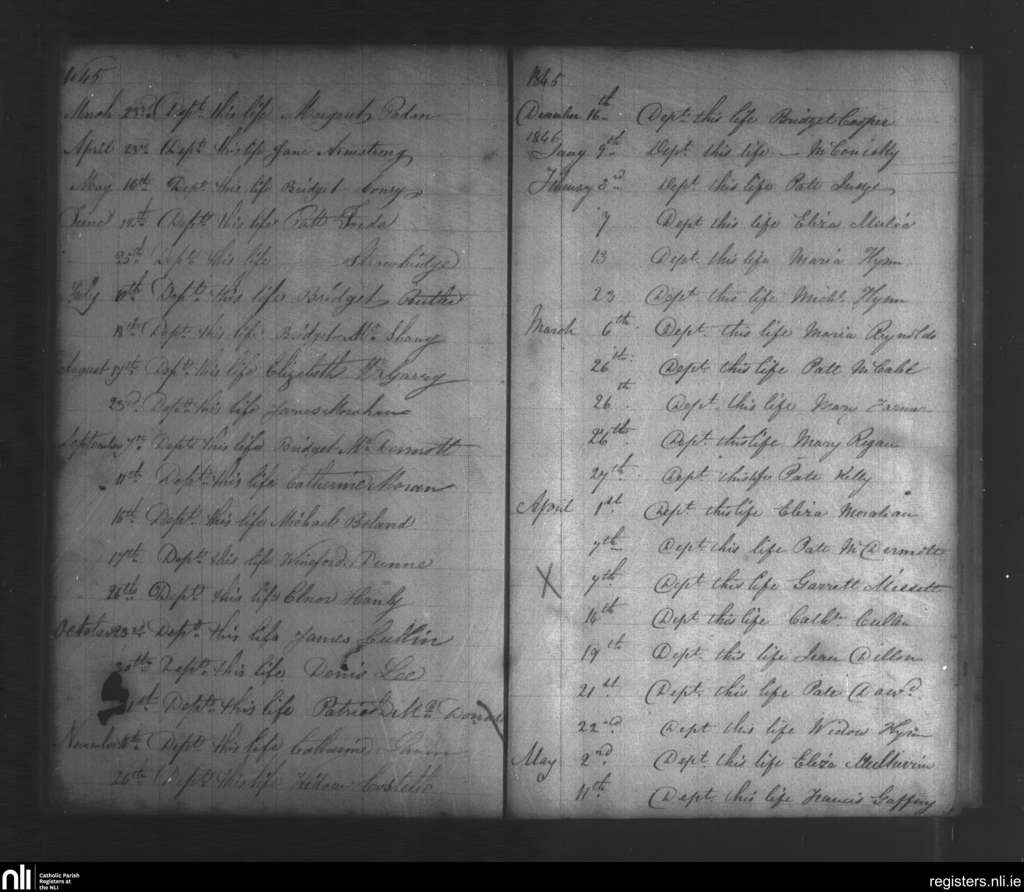 1845
March 23rd Dept. this life Margaret
April 23rd Dept. this life Jane Armstrong
May 16th Dept. this life Bridget
June Dept. this life Patt
25th Dept. this life
July Dept. this life Bridget
18th Dept. this life Bridget
August Dept. this life Elizabeth McGarry
23rd Dept. this life James Morahan
September 7th Dept. this life Bridget McDermott
11th Dept. this life Catherine Moran
16th Dept. this life Michael Boland
17th Dept. this life Wineford Dunne
26th Dept. this life Elnor Hanly
October 23rd Dept. this life James Cullin
30th Dept. this life Denis Lee
31st Dept. this life Patrick
November Dept. this life Catharine
26th Dept. this life Costello
1845
December 16th Dept. this life Bridget Casper
1846
Jany 9th Dept. this life — McConielly
3rd Dept. this life Patt Judge
7 Dept this life Eliza
13 Dept. this life Maria Hynn
23 Dept this life Michl. Hynn
March 6th Dept. this life Maria Reynolds
26th Dept this life Patt McCabe
26th Dept. this life Mary
26th Dept. this life Mary Regan
27th Dept this life Patt Kelly
April 1st Dept. this life Eliza Morahan
7th Dept. this life Patt McDermott
X 7th Dept this life Garrett Missett
14th Dept. this life Cathn. Cullen
19th Dept. this life Dillon
21st Dept. this life Patt
22nd Dept this life Widow Hynn
May 2nd Dept. this life Eliza
11th Dept. this life Francis Gaffny
nli
Catholic Parish
Registers at
the NLI
registers.nli.ie